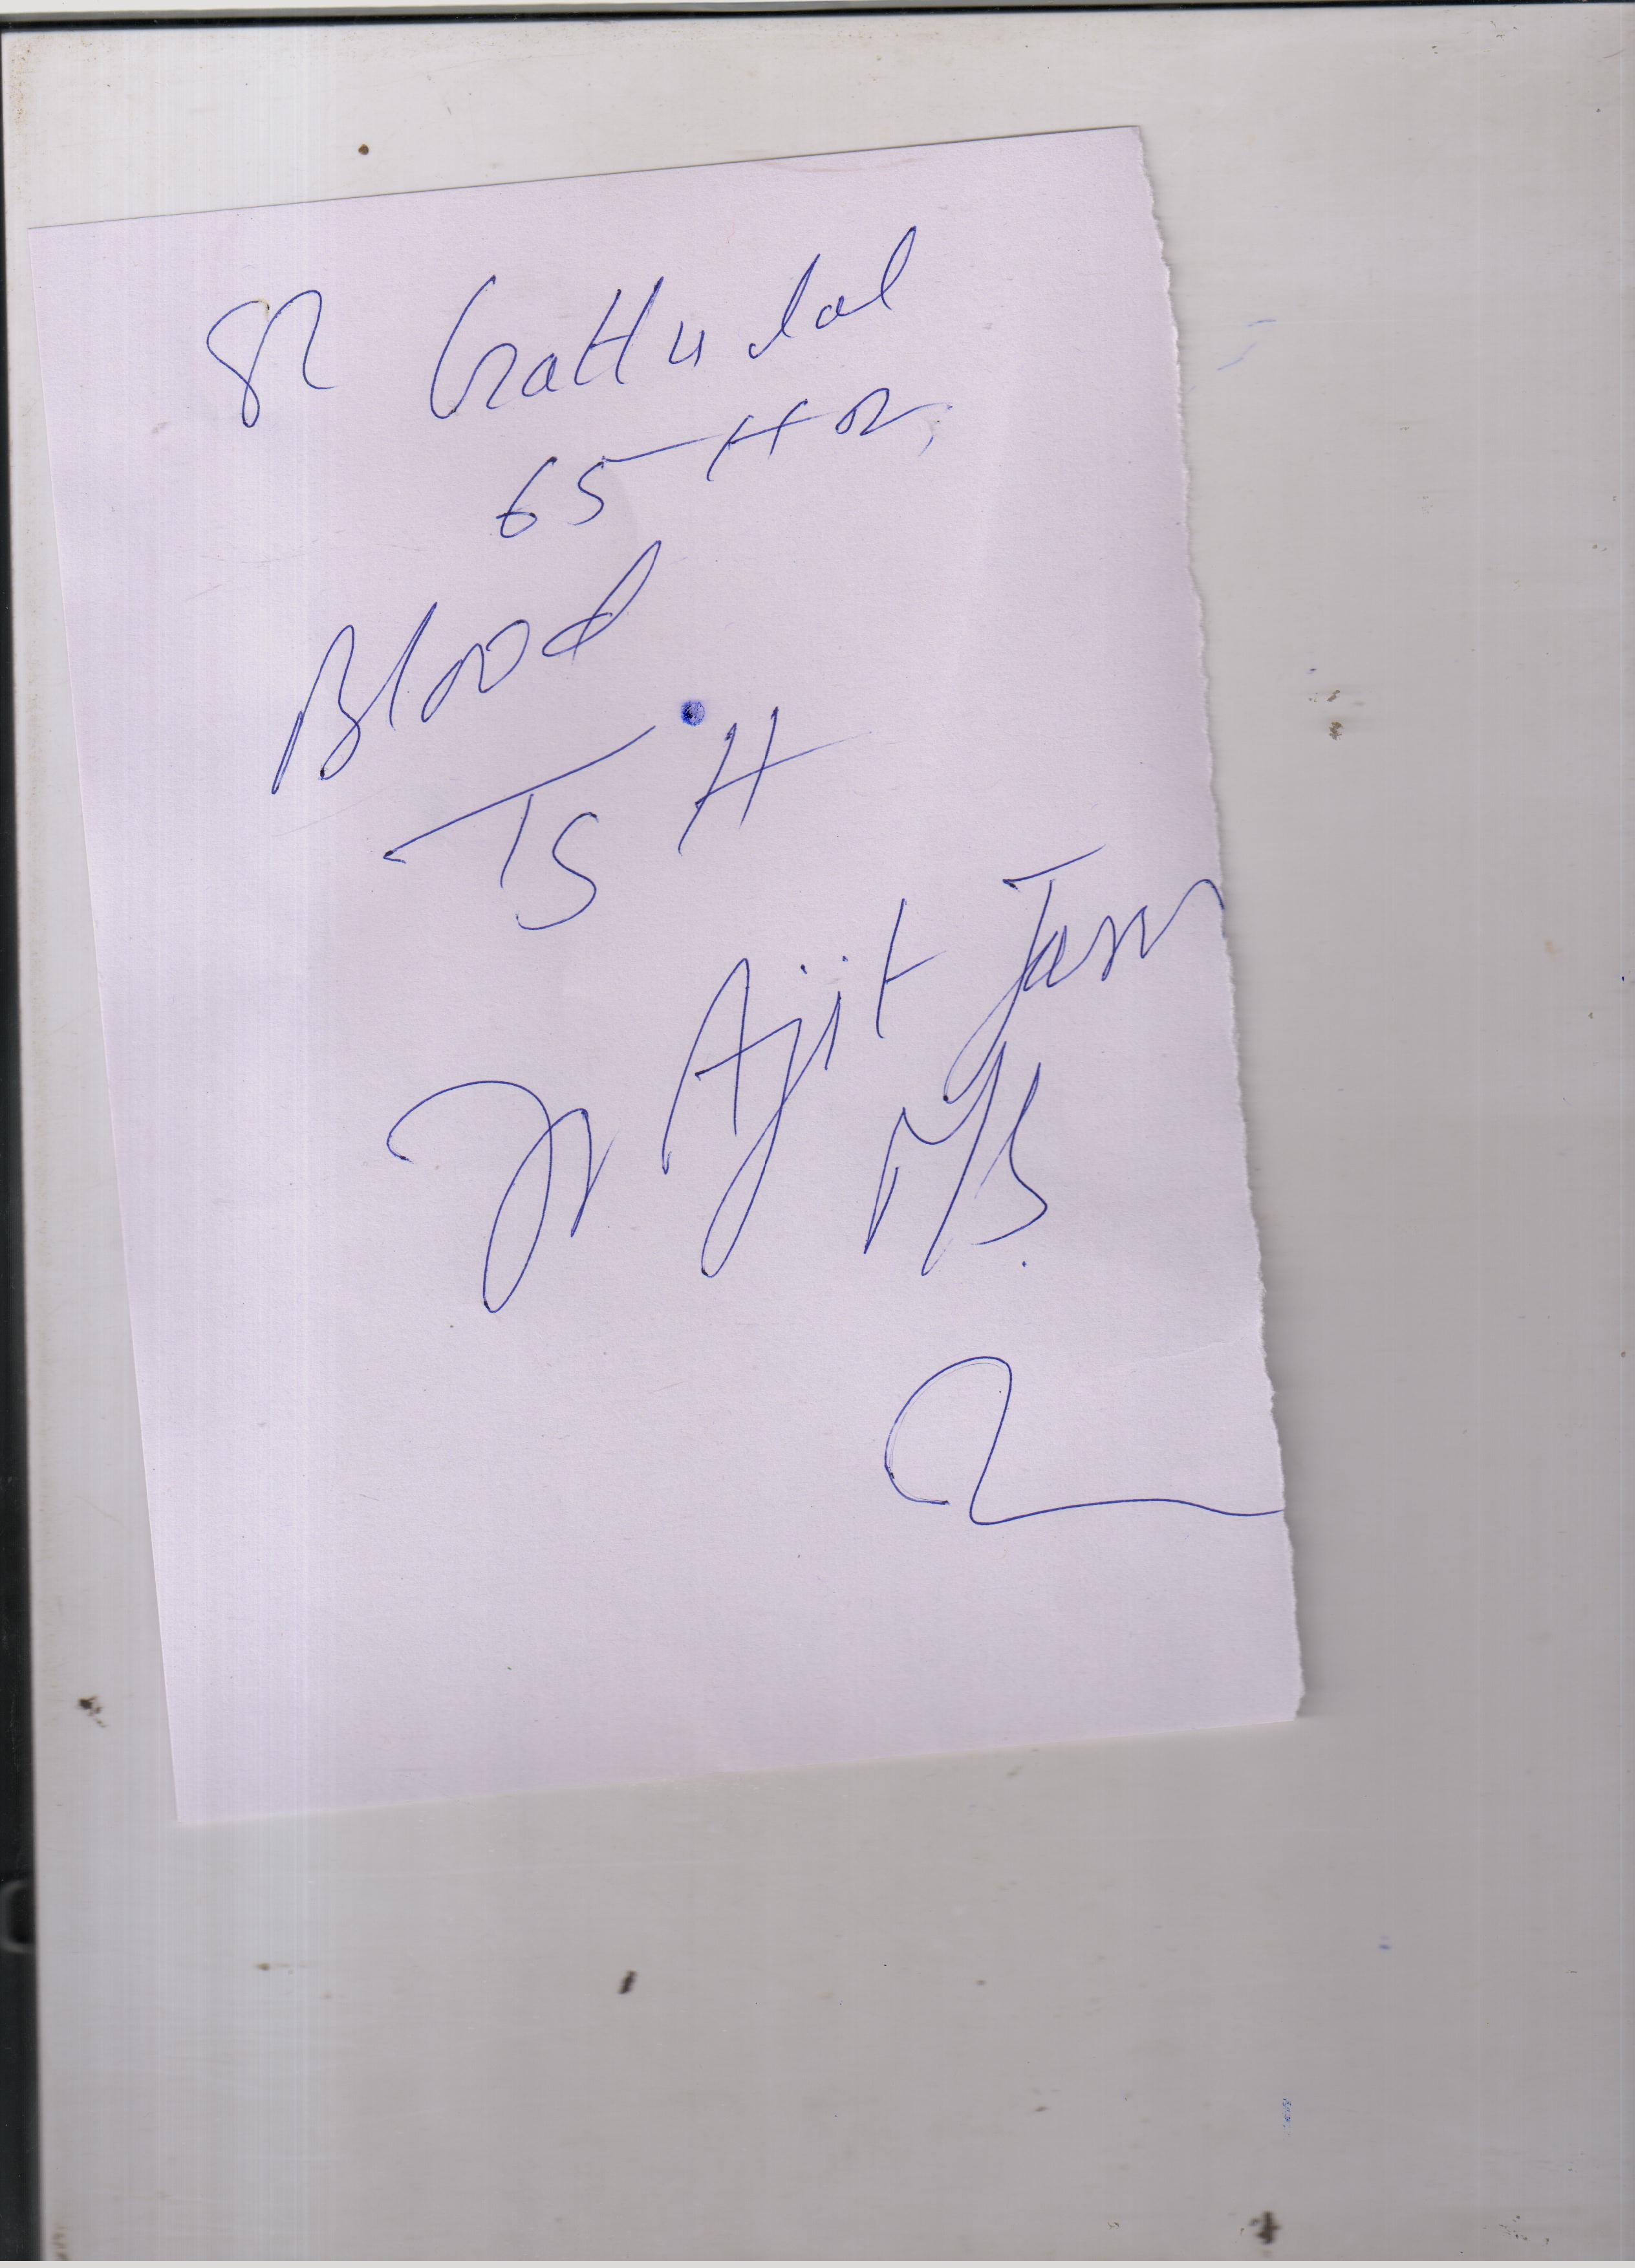 Sr Gattu lal
65 Hr
Blood
TSH
Dr Ajit Jain
MS.